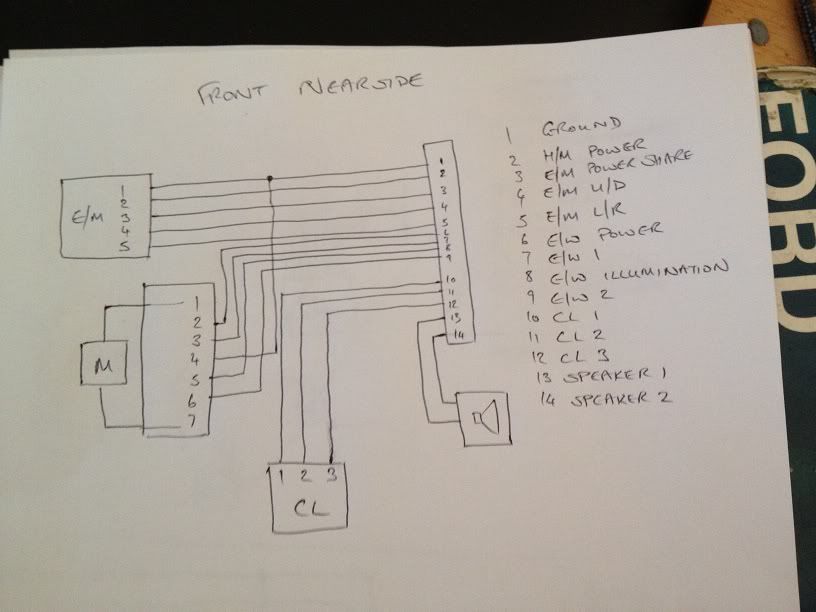 FRONT NEARSIDE
1 GROUND
2 H/M POWER
3 E/M POWER SHARE
4 E/M U/D
5 E/M L/R
6 E/W POWER
7 E/W 1
8 E/W ILLUMINATION
9 E/W 2
10 CL 1
11 CL 2
12 CL 3
13 SPEAKER 1
14 SPEAKER 2
E/M
1
2
3
4
5
1
2
3
4
5
6
7
8
9
10
11
12
13
14
M
1
2
3
4
5
6
7
1 2 3
CL
FORD